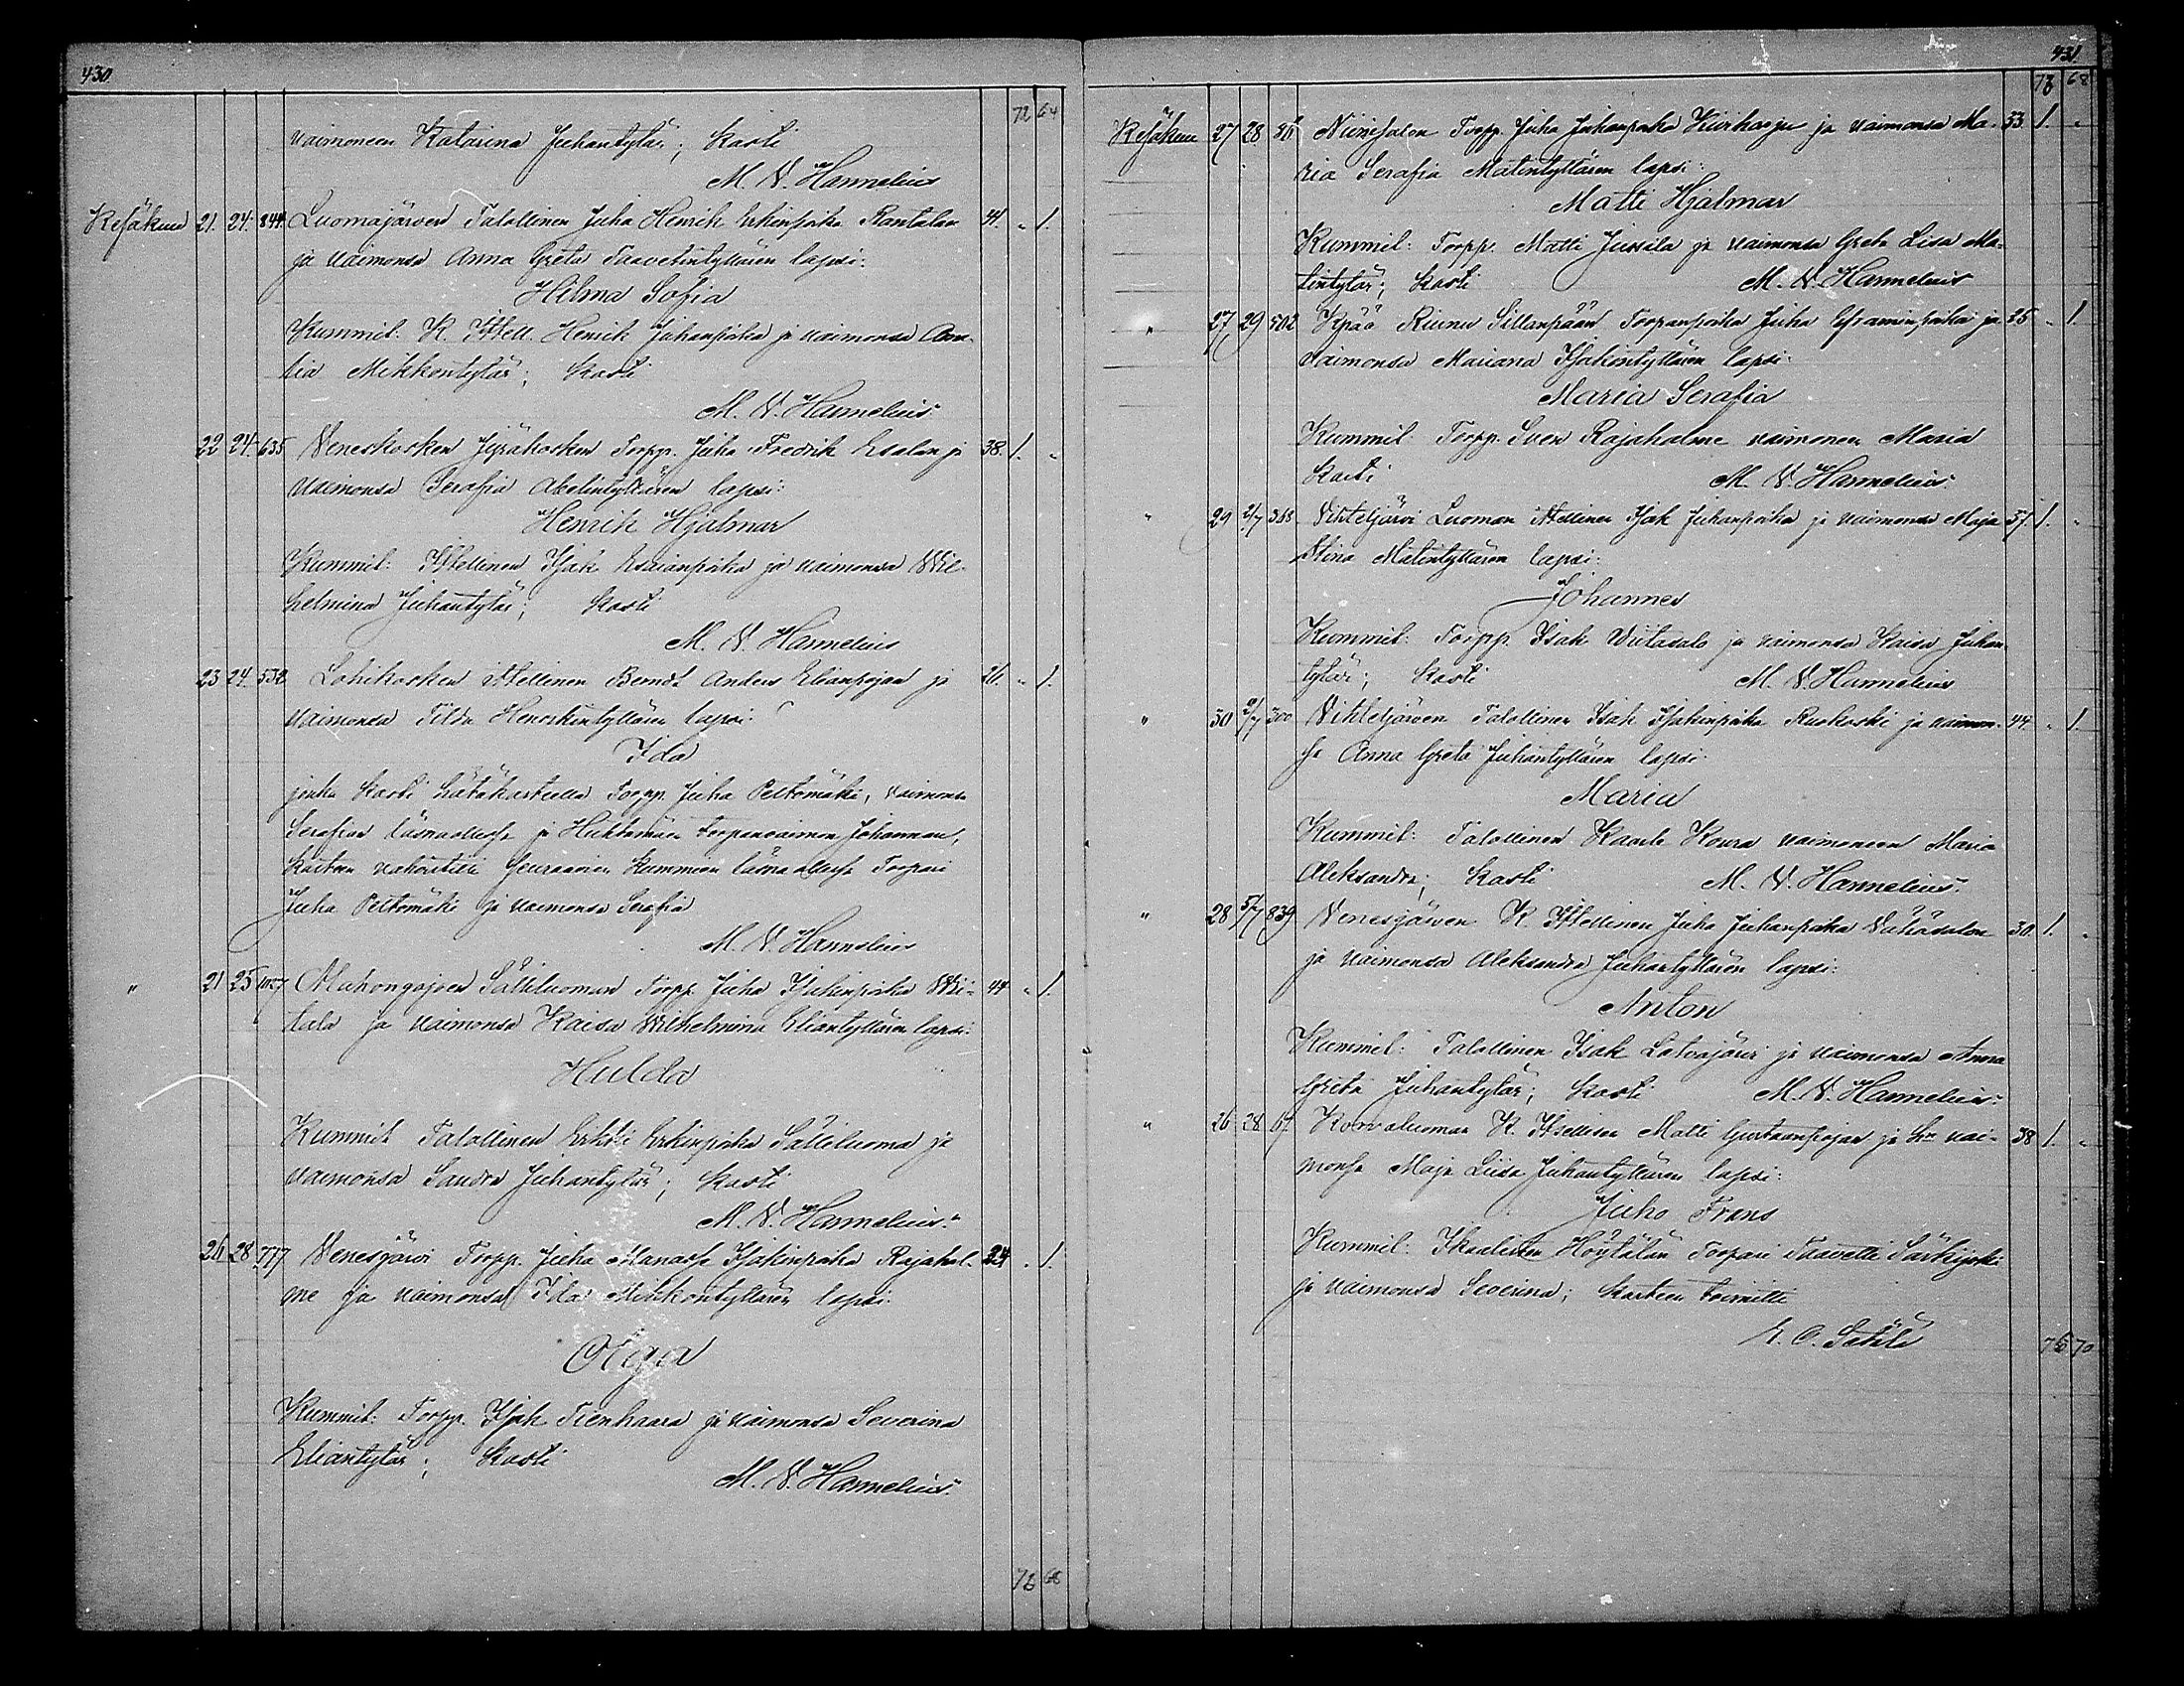 430.
72 64
vaimoneen Katarina Juhantytär; Kasti
M. V. Hannelius
Kesäkuu 21. 24. 844. Luomajärven Talollinen Juha Henrik Erkinpoika Rantalan 44. " 1.
ja vaimonsa Anna Greta Taavetintyttären lapsi:
Hilma Sofia
Kummit: K. Itsell. Henrik Juhanpoika ja vaimonsa
Mikkontytär; Kasti
M. V. Hannelius
22 24. 635 Veneskosken Jyräkosken Torpp. Juha Fredrik Esalan ja 38. 1. "
vaimonsa Serafia Abelintyttären lapsi:
Henrik Hjalmar
Kummit: Itsellinen Isak Esaianpoika ja vaimonsa Wil-
helmina Juhantytär; Kasti
M. V. Hannelius
23 24. 532 Lohikosken itsellinen Berndt Anders Elianpojan ja 26. " 1.
vaimonsa Tilda Henrikintyttären lapsi:
Ida
jonka Kasti hätäkasteella Torpp. Juha Peltomäki, vaimonsa
Serafian läsnäollessa ja Huhtamäen torpanvaimon Johannan,
Kasteen vahvistin seuraavien Kummien läsnäollessa Torpari
Juha Peltomäki ja vaimonsa Serafia
M. V. Hannelius
" 21 25 1027 Alahongojoen Sälliluoman Torpp. Juha Isakinpoika 44 " 1.
tala ja vaimonsa Kaisa Wilhelmina Eliantyttären lapsi:
Hulda
Kummit Talollinen Erkki Erkinpoika Sälliluoma ja
vaimonsa Sandra Juhantytär; Kasti
M. V. Hannelius.
26 28 777 Venesjärvi Torpp. Juha Manasse Isakinpoika Rajahal- 24 " 1.
me ja vaimonsa Ida Mikkontyttären lapsi:
Olga
Kummit: Torpp. Isak Tienhaara ja vaimonsa Severina
Eliantytär; Kasti
M. V. Hannelius.
72 68
431
72 68
Kesäkuu 27 28 Niinisalon Torpp. Juha Juhanpoika Kiviharju ja vaimonsa Ma- 33. 1. "
ria Serafia Matintyttären lapsi:
Matti Hjalmar
Kummit: Torpp. Matti Jussila ja vaimonsa Greta Lisa Ma-
tintytär; Kasti M. V. Hannelius
" 27 29 502 Kyrön Sillanpään Torpanpoika Juha Eframinpoika ja 35 " 1.
vaimonsa Mariana Isakintyttären lapsi:
Maria Serafia
Kummit: Torpp. Sven Rajahalme vaimoneen Maria
Kasti M. V. Hannelius.
" 29 2/7 368 Vihteljärvi Luoman itsellinen Isak Juhanpoika ja vaimonsa Maja 37. 1. "
Stina Matintyttären lapsi:
Johannes
Kummit: Torpp. Isak Viitasalo ja vaimonsa Kaisa Juhan-
tytär; Kasti M. V. Hannelius
" 30 2/7 300 Vihteljärven Talollinen Isak Isakinpoika Ruokoski ja vaimon- 44. " 1.
sa Anna Greta Juhantyttären lapsi:
Maria
Kummit: Talollinen Kaarle Koura vaimoneen Maria
Aleksandra; Kasti M. V. Hannelius.
" 28 5/7 839 Venesjärven K. Itsellinen Juha Juhanpoika Vähäsalon 30. 1. "
ja vaimonsa Aleksandra Juhantyttären lapsi:
Anton
Kummit: Talollinen Isak Latvajärvi ja vaimonsa Anna
Greta Juhantytär; Kasti M. V. Hannelius.
" 26 28. 67. Korvaluoman K. Itsellisen Matti Gustaanpojan ja h:n vai- 38 1. "
monsa Maja Liisa Juhantyttären lapsi:
Juho Frans
Kummit: Ikaalisten Höytölän Torpari Taavetti Särkijoki
ja vaimonsa Severina; Kasteen toimitti
K. O. Setälä
76 70